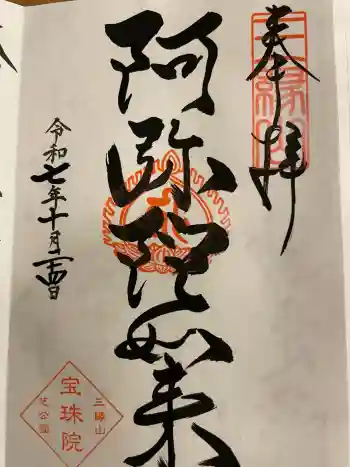 奉拝
阿弥陀如来
令和七年十月二十四日
三縁山
宝珠院
芝公園